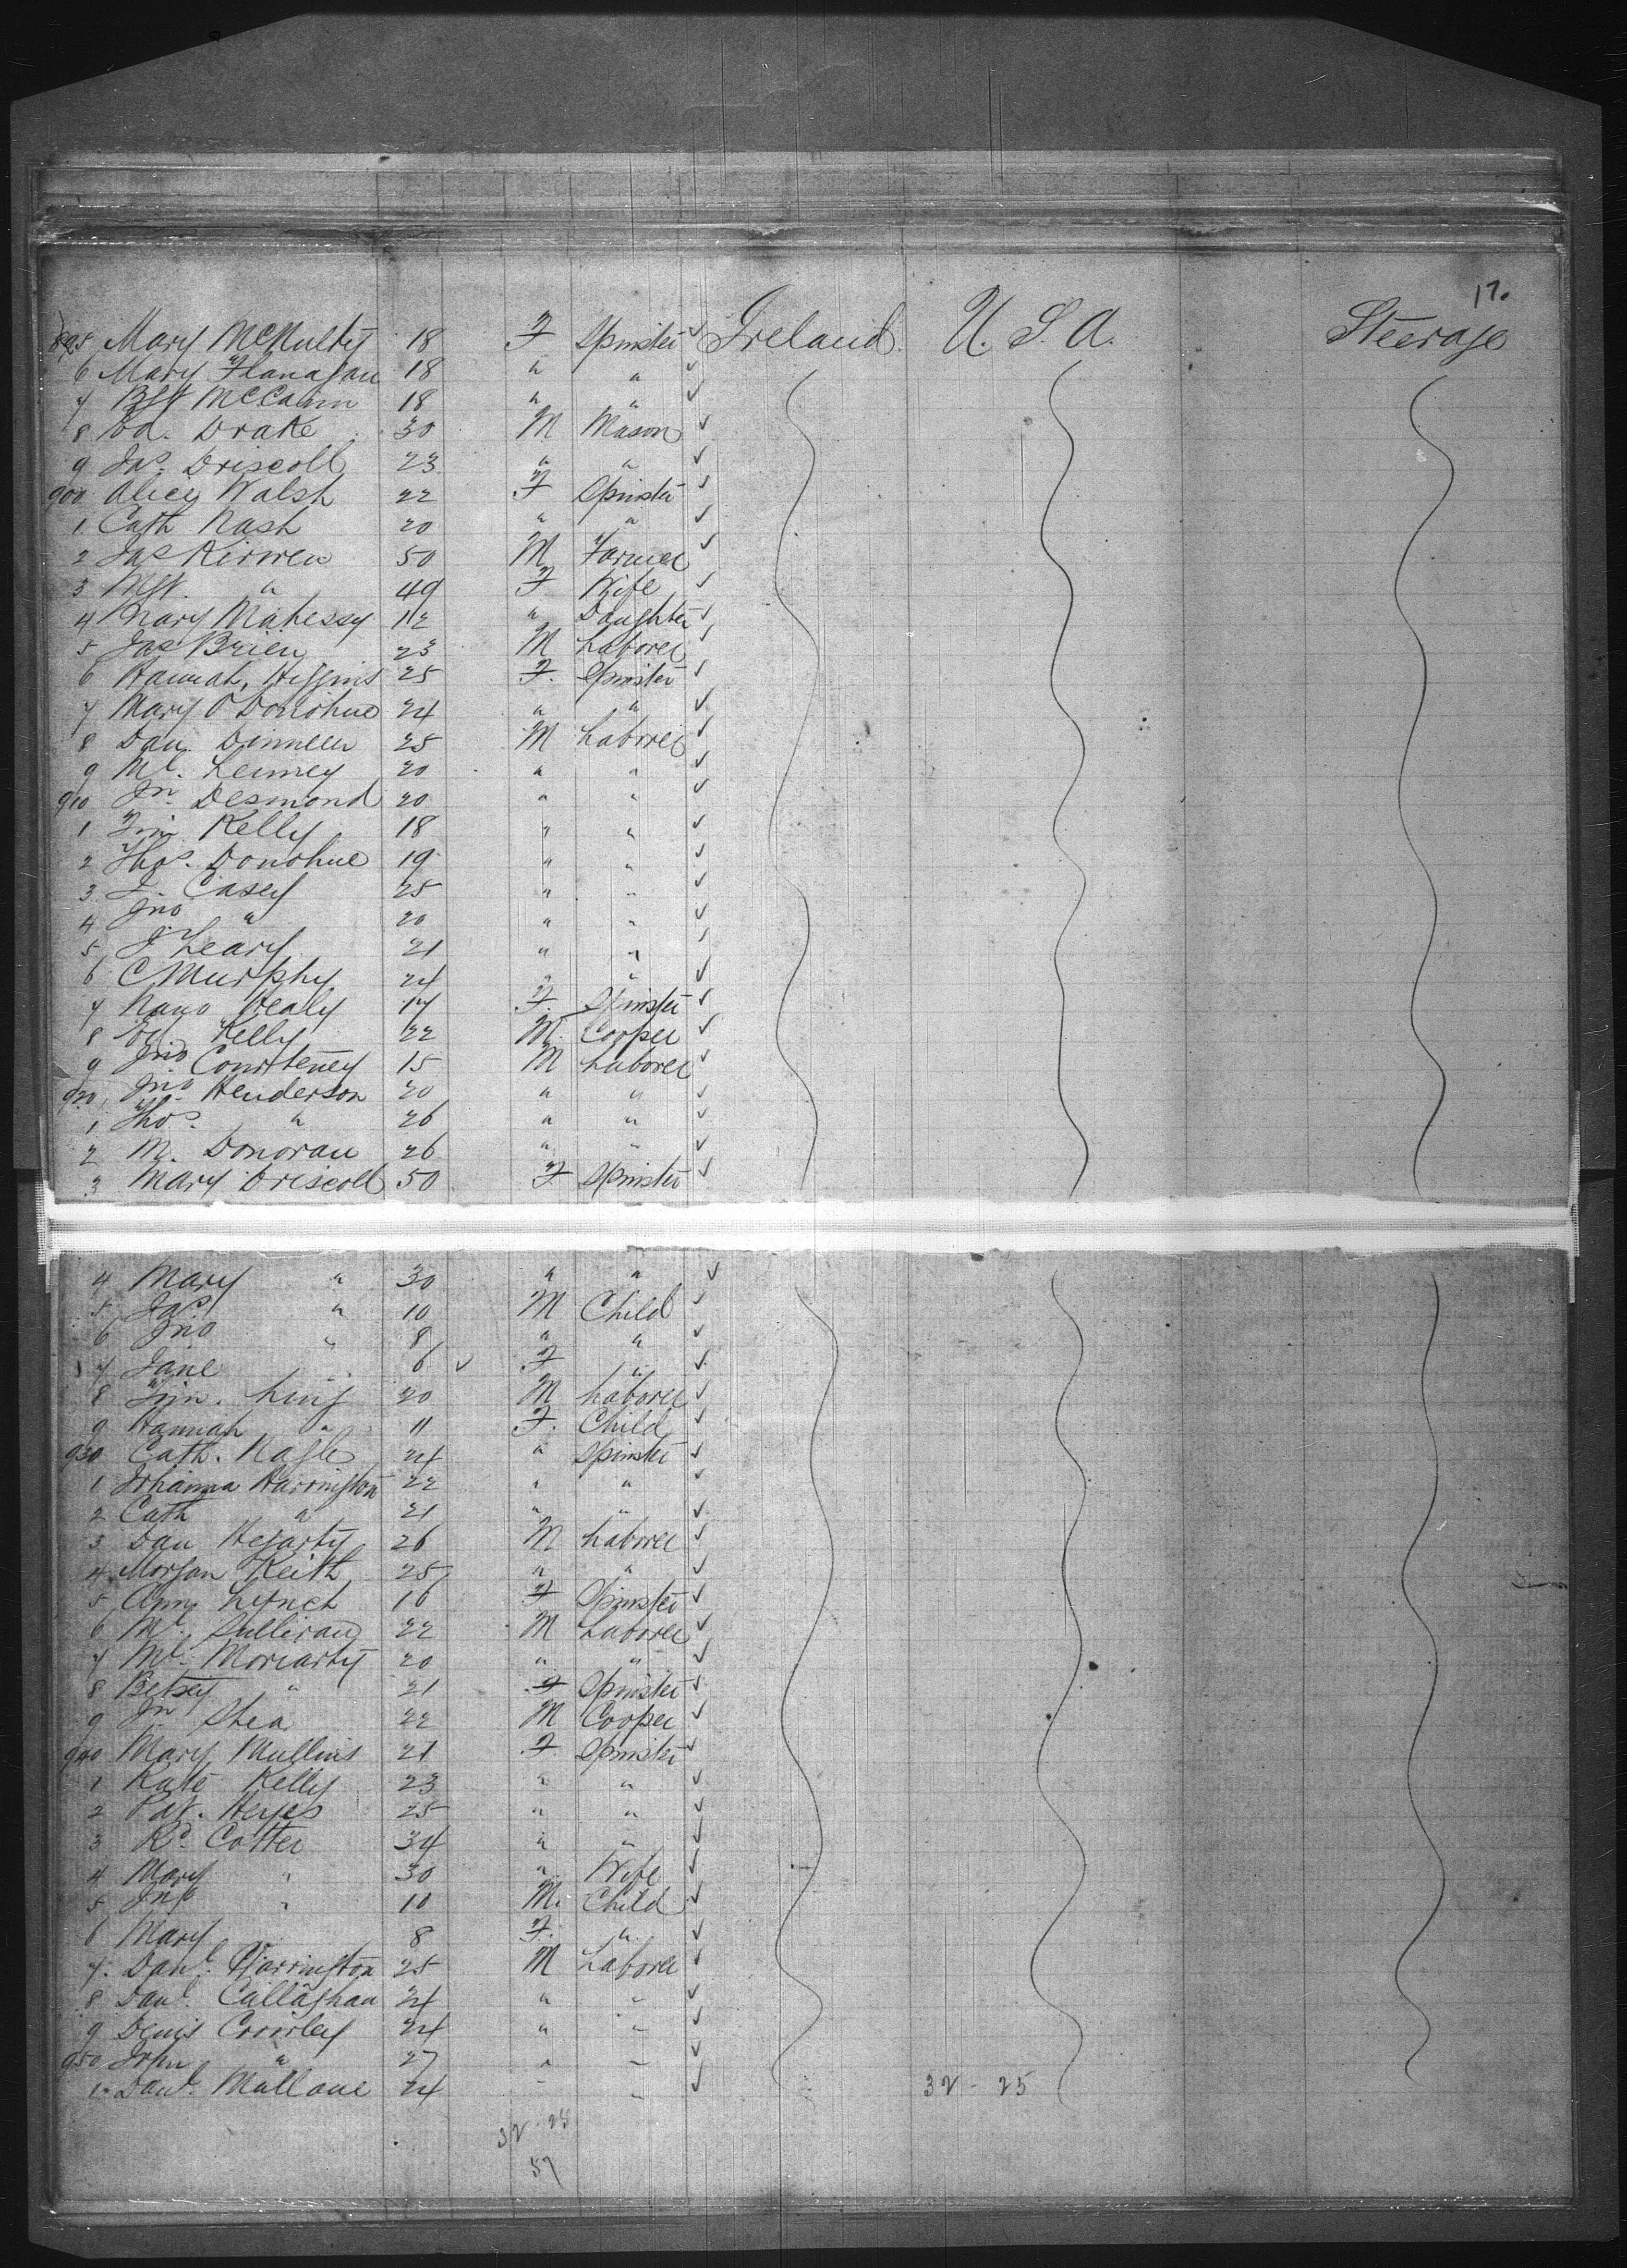 17.
895 Mary McNulty 18 F Spinster ✓ Ireland U.S.A. Steerage
6 Mary Flanagan 18 " " ✓
7 Bgt McCann 18 " " ✓
8 Ed. Drake 30 M Mason ✓
9 Jas. Driscoll 23 " " ✓
900 Alice Walsh 22 F Spinster ✓
1 Cath Nash 20 " " ✓
2 Jas Kirwen 50 M Farmer ✓
3 Mgt. " 49 F Wife ✓
4 Mary Mahessy 12 " Daughter ✓
5 Jas Brien 23 M Laborer ✓
6 Hannah Higgins 25 F. Spinster ✓
7 Mary O'Donohue 24 " " ✓
8 Dan. Dinneen 25 M Laborer ✓
9 Ml. 20 " " ✓
910 Jn Desmond 20 " " ✓
1 Tim Kelly 18 " " ✓
2 Thos. Donohue 19 " " ✓
3 Casey 25 " " ✓
4 Jno " 20 " " ✓
5 J Leary 21 " " ✓
6 C Murphy 24 " " ✓
7 Nano Healy 17 F. Spinster ✓
8 Ed. Kelly 22 M. Cooper ✓
9 Jno Courteney 15 M Laborer ✓
920 Jno. Henderson 20 " " ✓
1 Thos. " 26 " " ✓
2 M. Donovan 26 " " ✓
3 Mary Driscoll 50 F Spinster ✓
4 Mary " 30 " " ✓
5 Jas " 10 M Child ✓
6 Jno " 8 " " ✓
7 Jane " 6 ✓ F " ✓
8 Tim. King 20 M Laborer ✓
9 Hannah " 11 F. Child ✓
930 Cath. Nagle 24 " Spinster ✓
1 Johanna Harrington 22 " " ✓
2 Cath " 21 " " ✓
3 Dan Hegarty 26 M Laborer ✓
4 Morgan Keith 25 " " ✓
5 Ann Lynch 16 F Spinster ✓
6 Ml. Sullivan 22 M Laborer ✓
7 Ml. Moriarty 20 " " ✓
8 Betsey " 21 F Spinster ✓
9 Jn Shea 22 M Cooper ✓
940 Mary Mullins 21 F. Spinster ✓
1 Kate Kelly 23 " " ✓
2 Pat. Heyes 25 " " ✓
3 Rd. Cotter 34 " " ✓
4 Mary " 30 " Wife ✓
5 Jno " 10 M. Child ✓
6 Mary 8 F. " ✓
7. Danl. Harrington 25 M Laborer ✓
8 Danl. Callaghan 24 " " ✓
9 Denis Crowley 24 " " ✓
950 John " 27 " " ✓
1. Danl. Mallone 24 " " ✓ 32 - 25
32 - 25
57